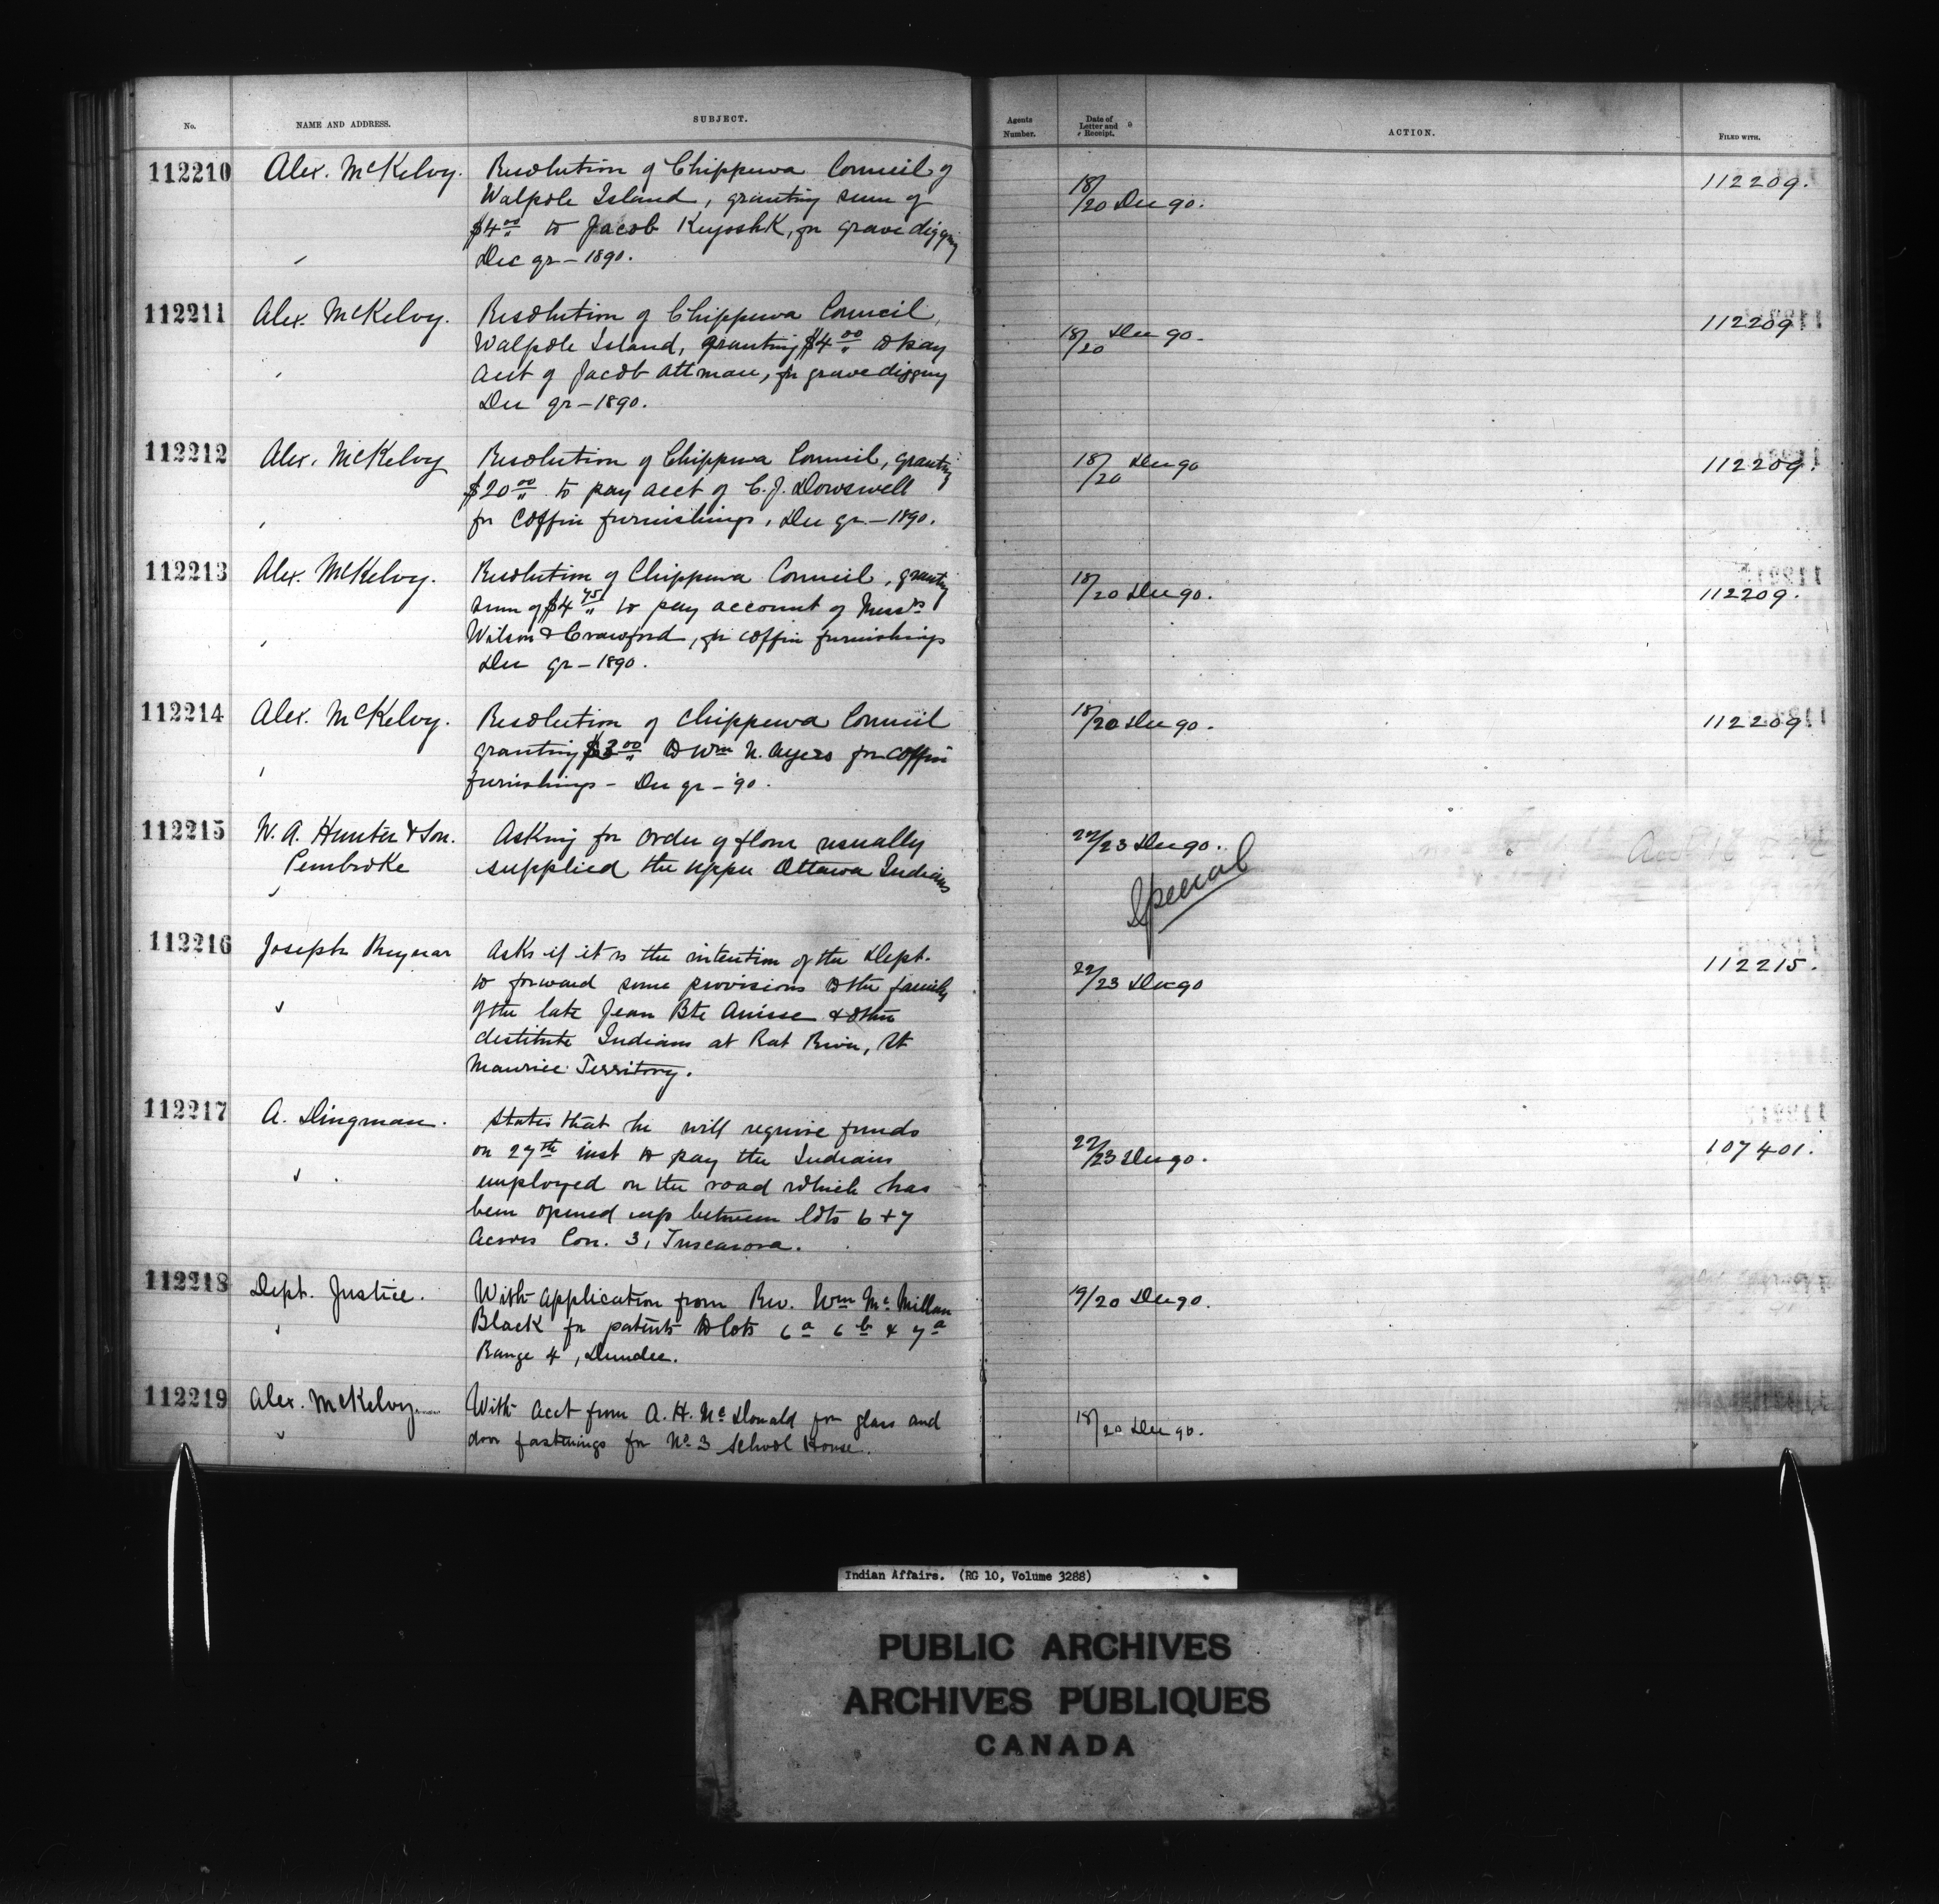 No.
NAME AND ADDRESS.
SUBJECT.
Agents Number.
Date of Letter and Receipt.
ACTION.
FILED WITH.
112210 Alex. McKelvy. Resolution of Chippewa Council of
Walpole Island, granting sum of
$4.00 to Jacob KiyoshK, for grave digging
Dec qr - 1890.
18/20 Dec 90.
112209.
112211 Alex. McKelvy. Resolution of Chippewa Council,
Walpole Island, granting $4.00 to pay
acct of Jacob Altman, for grave digging
Dec qr - 1890.
18/20 Dec 90.
112209
112212 Alex. McKelvy Resolution of Chippewa Council, granting
$20.00 to pay acct of C. J. Dowswell
for coffin furnishings, Dec qr - 1890.
18/20 Dec 90
112209.
112213 Alex. McKelvy. Resolution of Chippewa Council, granting
sum of $4.45 to pay account of Messrs
Wilson & Crawford, for coffin furnishings
Dec qr - 1890.
18/20 Dec 90.
112209.
112214 Alex. McKelvy. Resolution of Chippewa Council
granting $3.00 to Wm N. Ayers for coffin
furnishings - Dec qr - '90.
18/20 Dec 90.
112209
112215 W. A. Hunter & Son. Asking for order of flour usually
Pembroke supplied the Upper Ottawa Indians
22/23 Dec 90.
Special
112216 Joseph Asks if it is the intention of the Dept.
to forward some provisions to the family
of the late Jean Bte Anisse & other
destitute Indians at Rat River, St
Maurice Territory.
22/23 Dec 90
112215.
112217 A. Dingman. States that he will require funds
on 27th inst to pay the Indians
employed on the road which has
been opened up between lots 6 + 7
Across Con. 3, Tuscarora.
22/23 Dec 90.
107401.
112218 Dept. Justice. With application from Rev. Wm McMillan
Black for patents to lots 6a 6b & 7a
Range 4, Dundee.
19/20 Dec 90.
112219 Alex. McKelvy With acct from A. H. McDonald for glass and
door fastenings for No 3 School House.
18/20 Dec 90.
Indian Affairs. (RG 10, Volume 3288)
PUBLIC ARCHIVES
ARCHIVES PUBLIQUES
CANADA